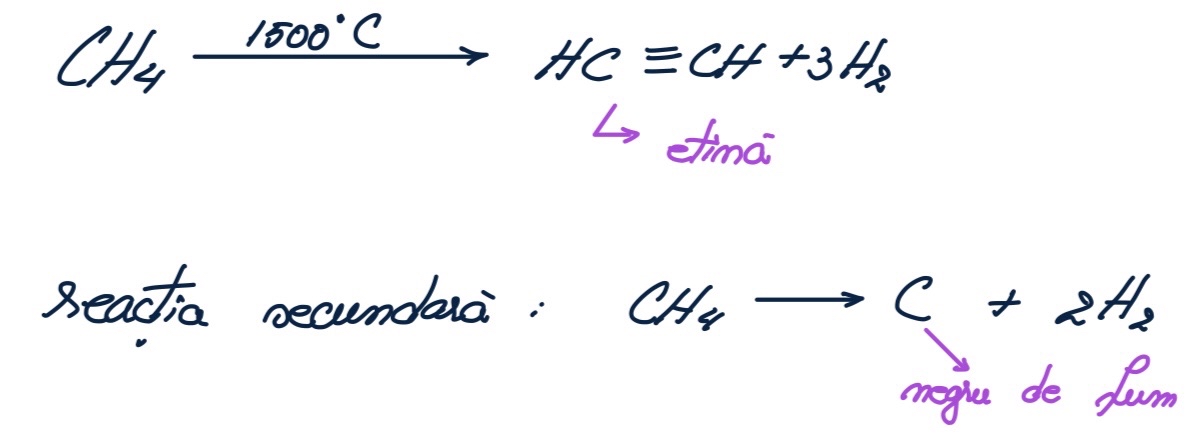 CH₄ ⟶ 1500°C HC≡CH + 3H₂
↳ etină
reacția secundară : CH₄ ⟶ C + 2H₂
negru de fum